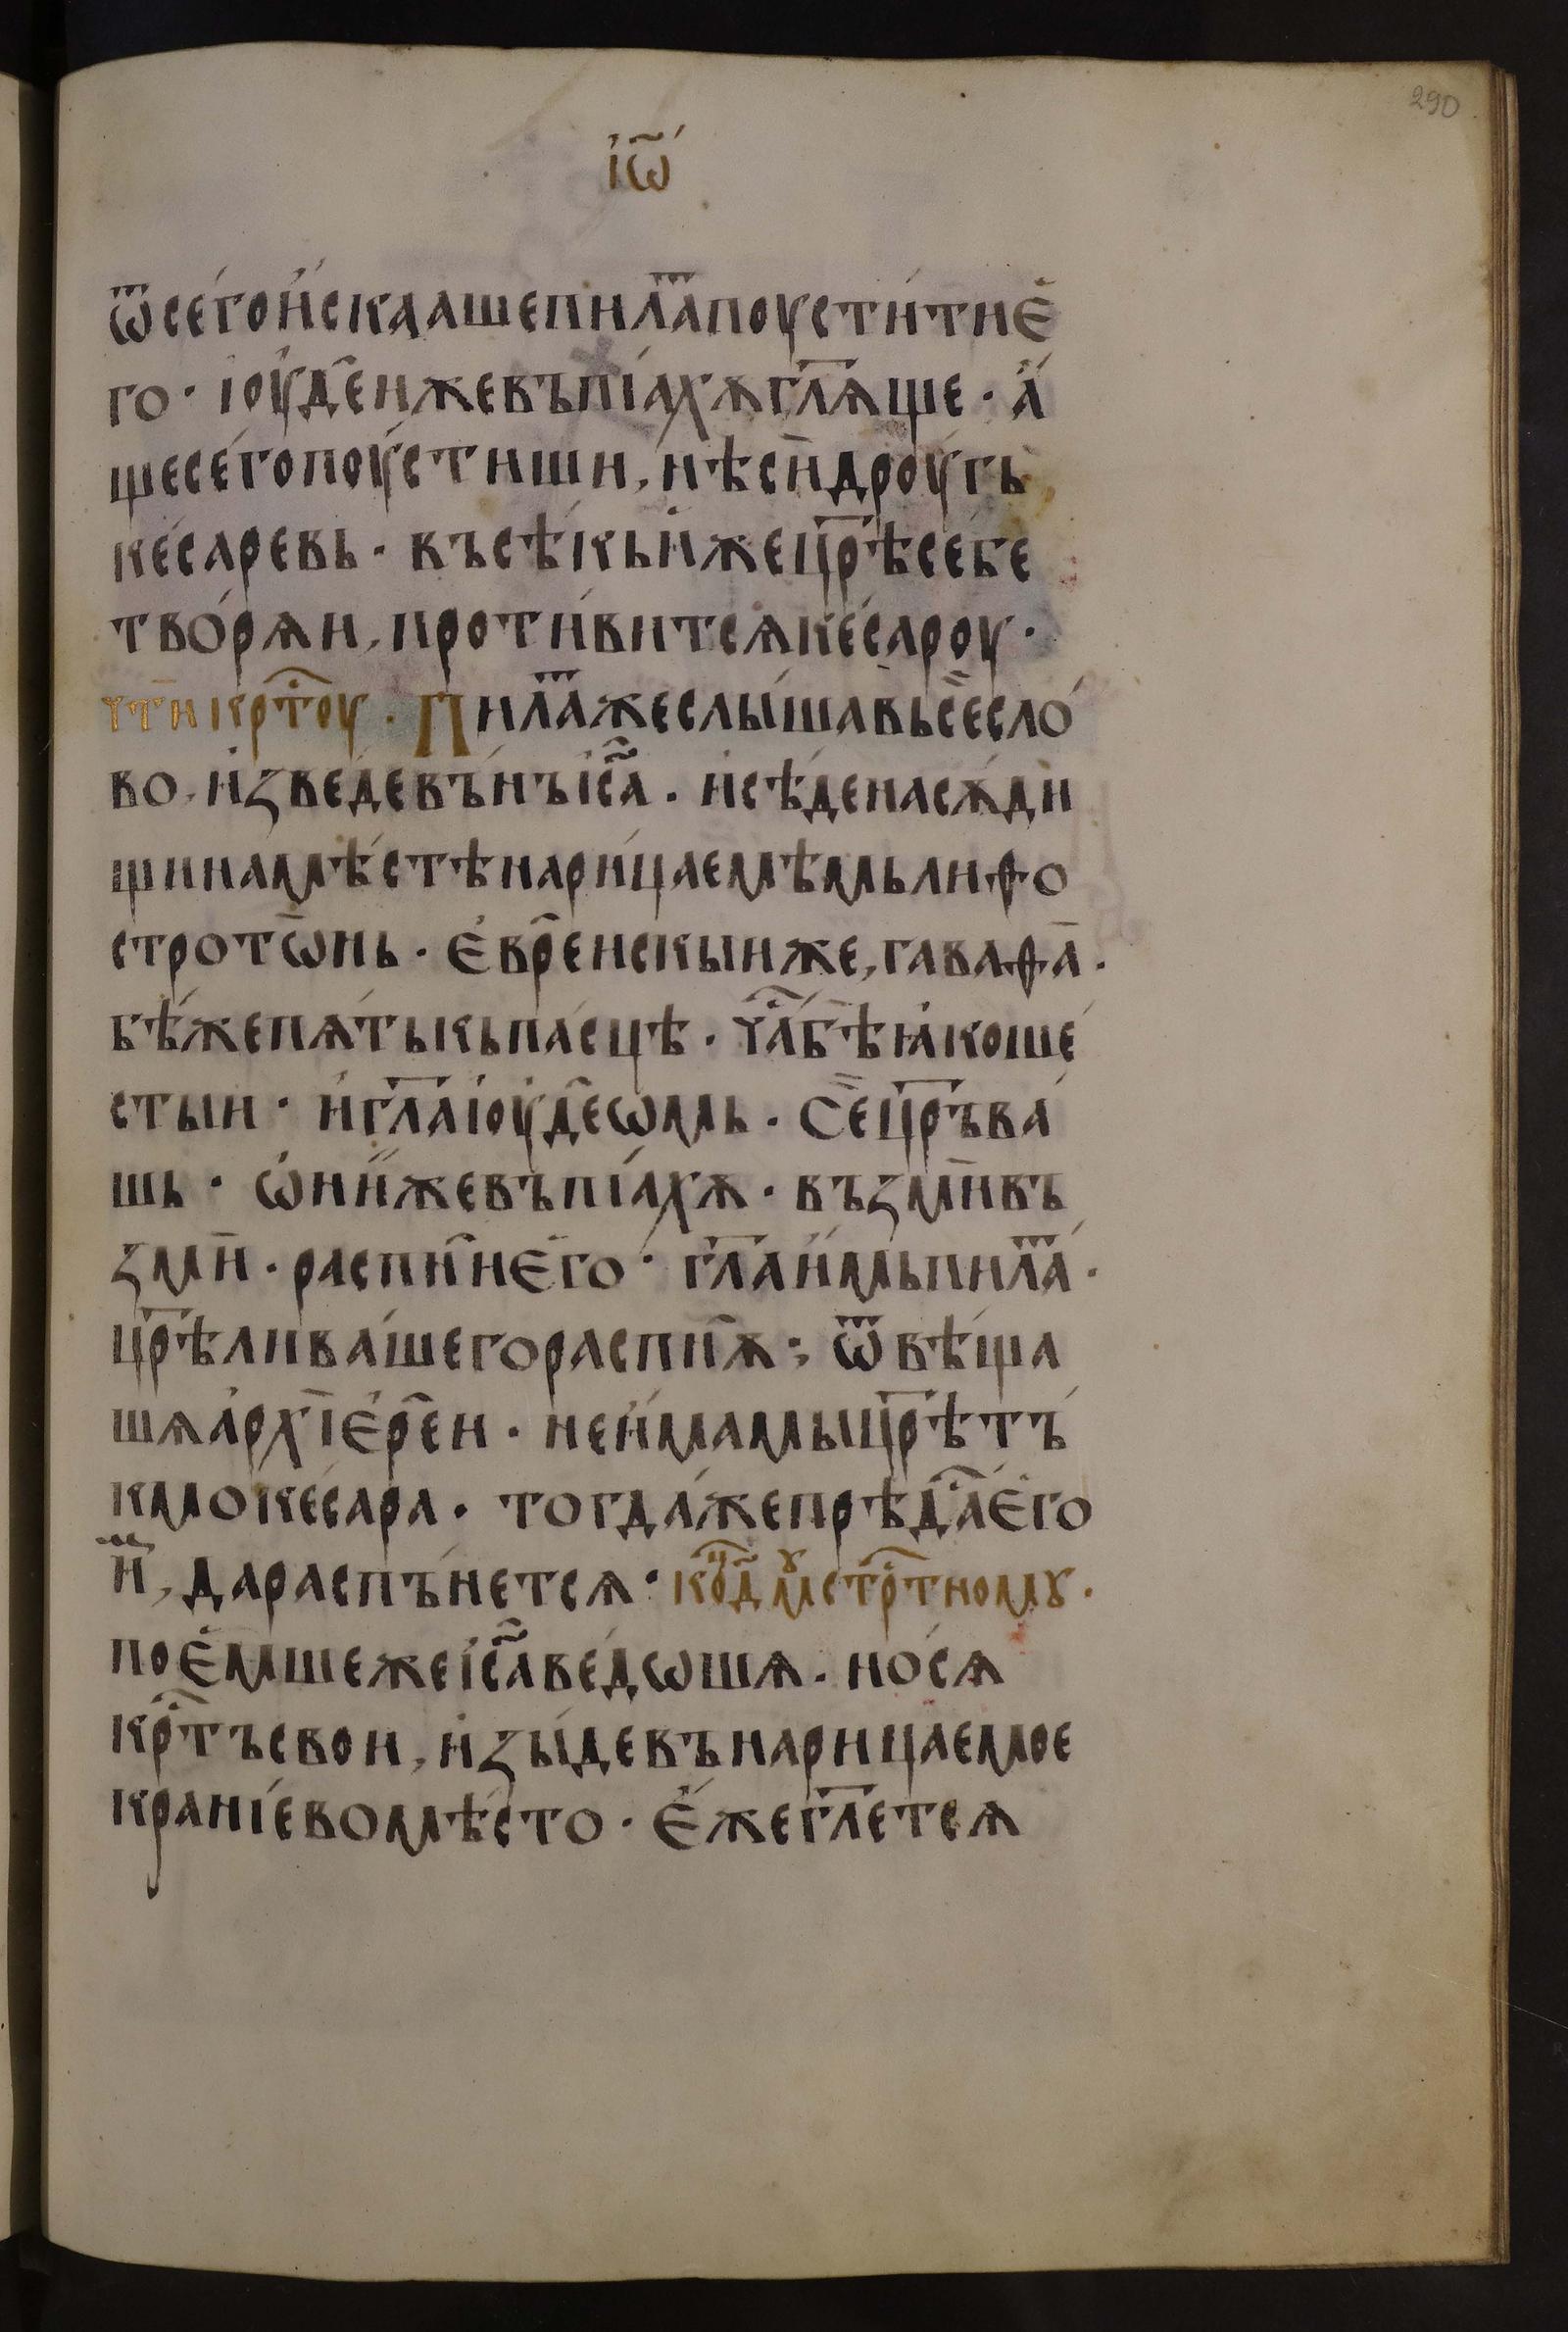 290
і҆ѡ҃
ѿсе́гои҆́скаашепила́ⷮапоусти́тиѐ
го · іоу҆дⷭ҇еижевъпїа́хѫгл҃ѧще · а҆́
щесе́гопоу́стиши, нѣси̏дроу́гь
ке́саревь · въсѣ́кыи҆жецр҃ѣсе́бе
тво́рѧи, проти́витсѧке́сароу ·
чти̏крⷭ҇тоу · Пила́ⷮажеслы́шавьсе̏сло́
во, и҆зве́девъ́нъі҆с҃а . и҆сѣ́денасѫ́ди
щинамѣ́стѣнари́цаемѣмьлиѳо
стротѡ̏нь · е҆вре̑искыиже, гаваѳа̏ .
бѣ́жепѧ́тькьпа́сцѣ · ча́ⷭ҇бѣꙗ҆́коше́
стыи · и҆гл҃а́іоу҆де̑ѡмь . Се̏цр҃ъва́
шь · ѡ҆ни́жевъпїа́хѫ · възми̏въ
зми̏ · распни̑е҆го̀ · гл҃аи҆́мьпила́ⷮ .
цр҃ѣлива́шегораспнѫ̑ ; ѿвѣ́ща
шѧа҆рхїе҆ре̑и · неи҆́мамыцр҃ѣтъ́
кмоке́сара . тогда́жепрѣда́ⷭ҇е҆го
и́ⷨ, дараспъ́нетсѧ · коⷩ҇д҃ мꙋстрⷭ҇тномꙋ .
пое҆́мшежеі҆с҃аве́дѡшѧ . но́сѧ
крⷭ҇тъсвои, и҆зы́девънарица́емое
кра́нїевомѣ́сто · є҆́жегл҃етсѧ